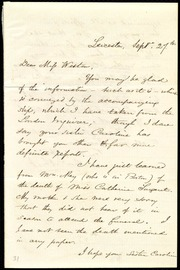 Leicester, Sept. 27th
Dear Miss Weston,
You may be glad
of the information – such as it is – which
is conveyed by the accompanying
slip, which I have taken from the
London Inquirer; though I dare
say your sister Caroline
has brought you other & far more
definite reports.
I have just learned
from Mr May (who is in Boston) of
the death of Miss Catherine Sargent.
My mother & she were very sorry
that they did not hear of it in
season to attend the funeral. I
have not seen the death mentioned
in any paper.
I hope your sister Caroline